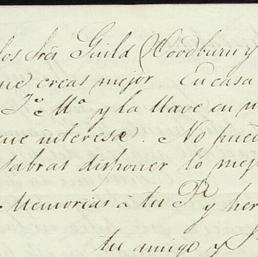 los Srés Guild (Woodburn y
que creas mejor. En casa
Jº. Mª y la llave en
que interese. No pued
sabras disponer lo mej
Memorias à tu P. y her
tu amigo y